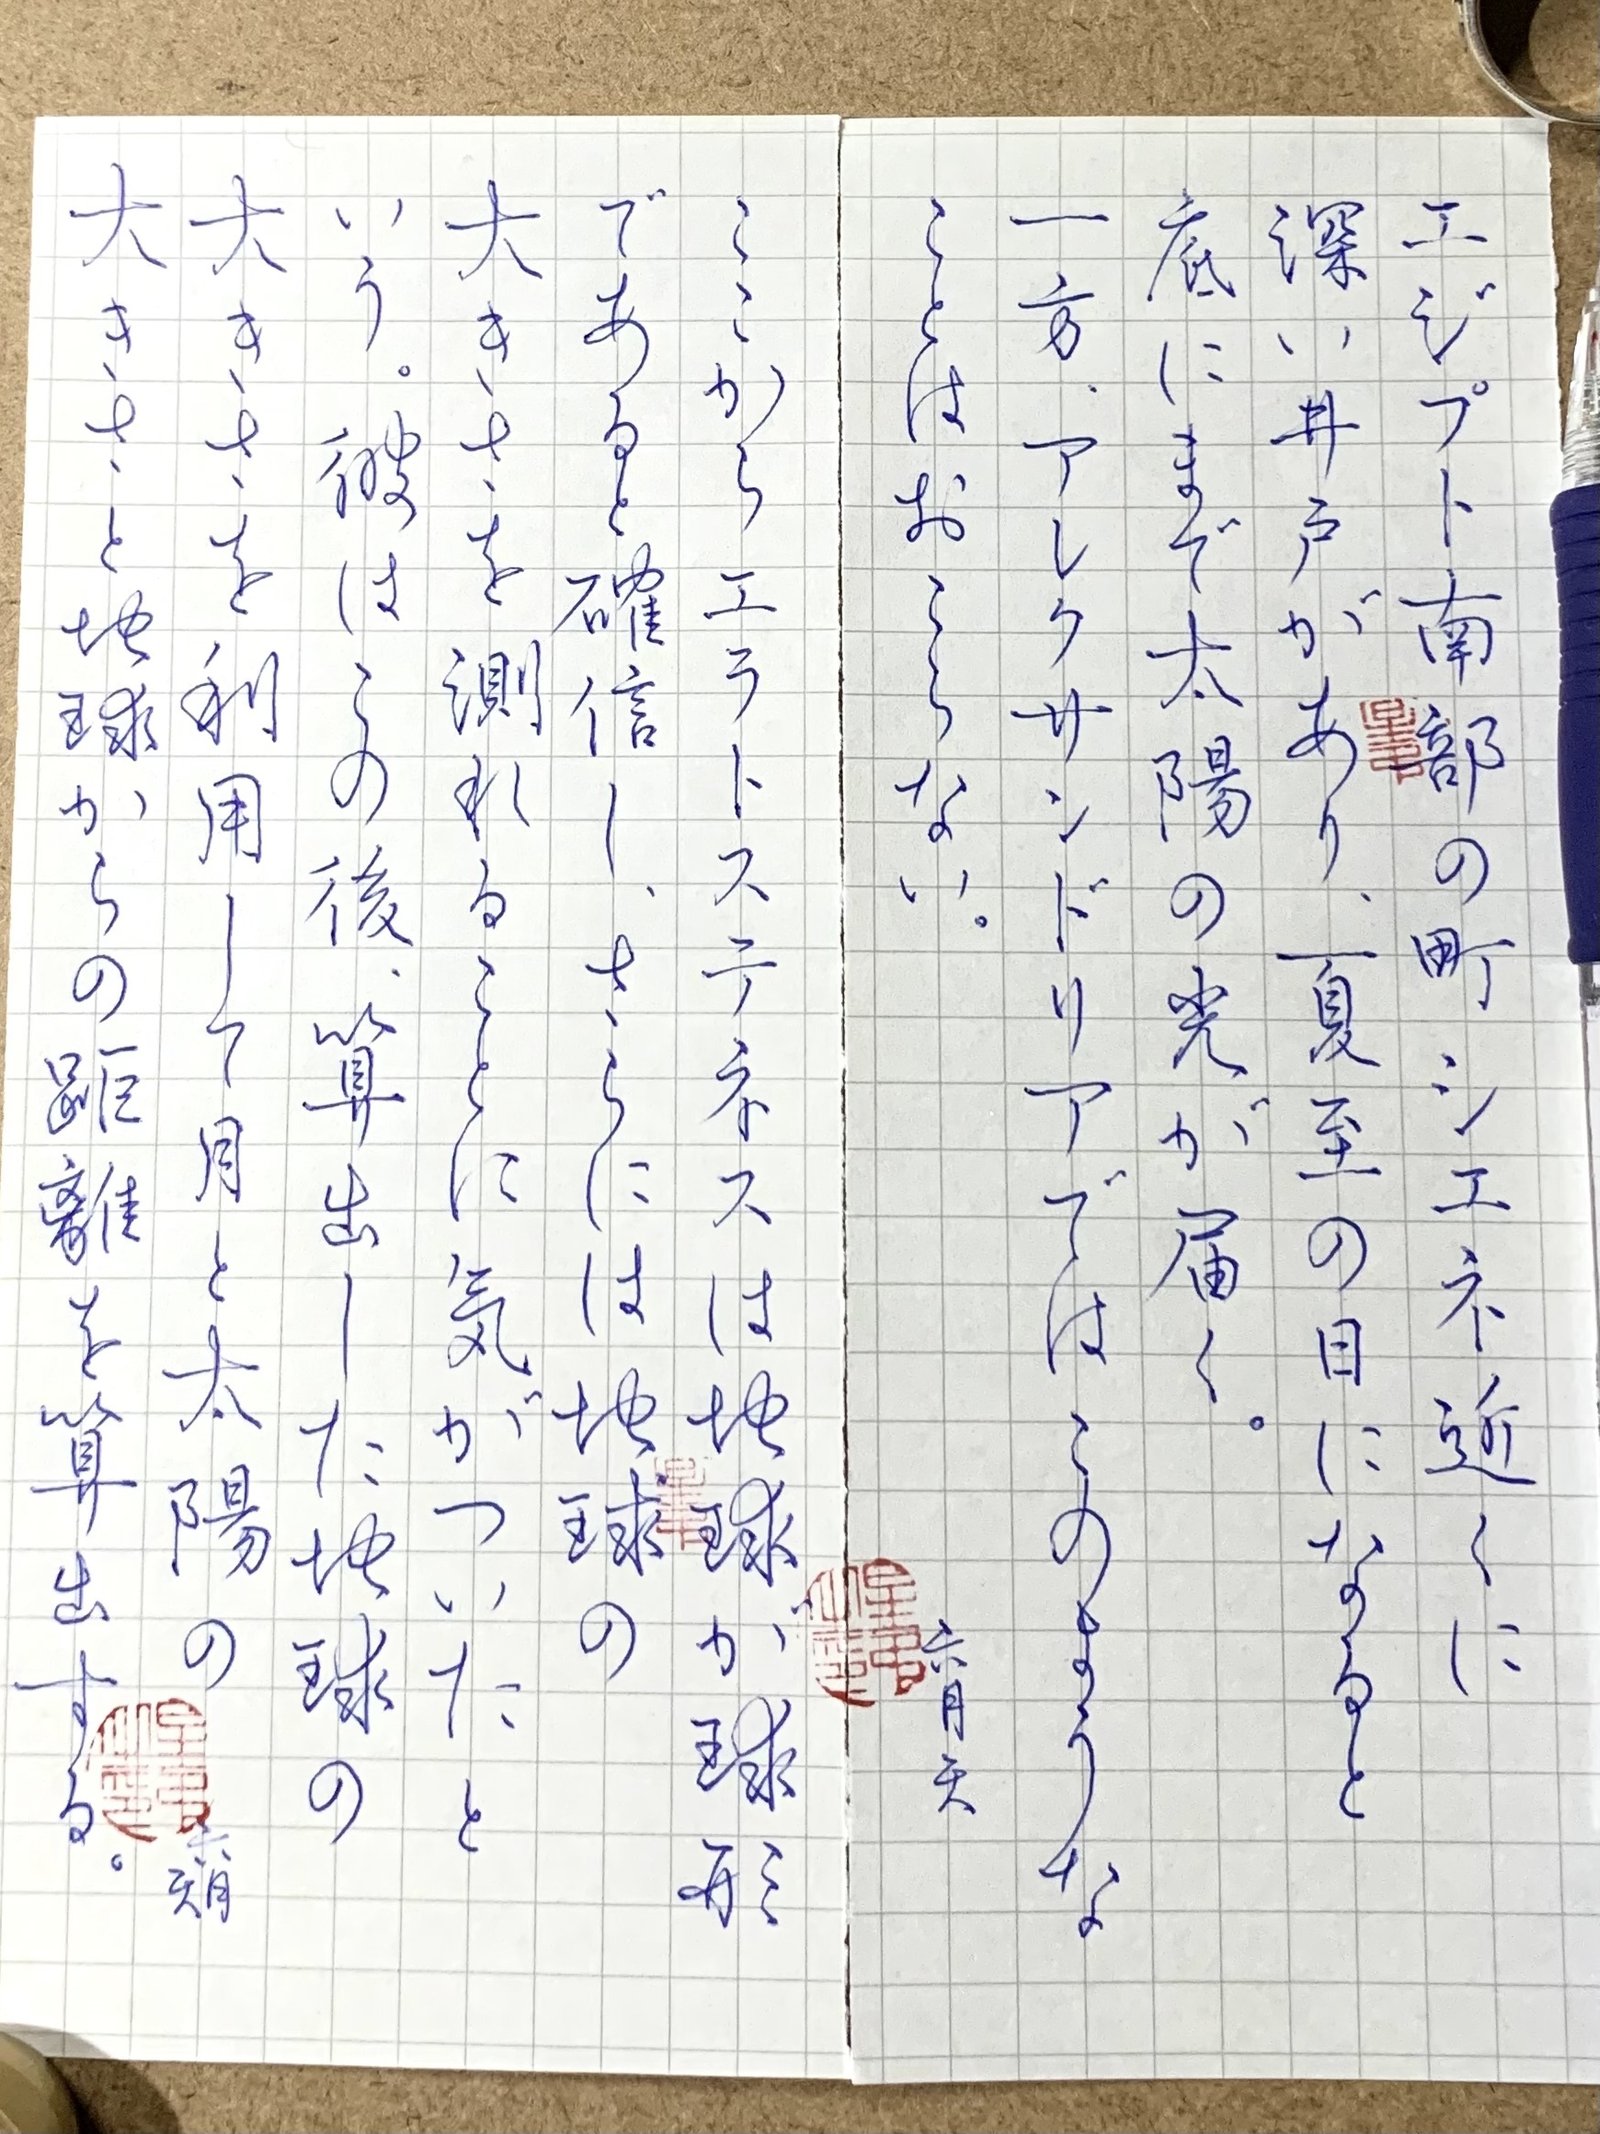 エジプト南部の町シエネ近くに
深い井戸があり、夏至の日になると
底にまで太陽の光が届く。
一方、アレクサンドリアではこのような
ことはおこらない。
六月天
ここからエラトステネスは地球が球形
であると確信し、さらには地球の
大きさを測れることに気がついたと
いう。彼はこの後、算出した地球の
大きさを利用して月と太陽の
大きさと地球からの距離を算出する。
六月天